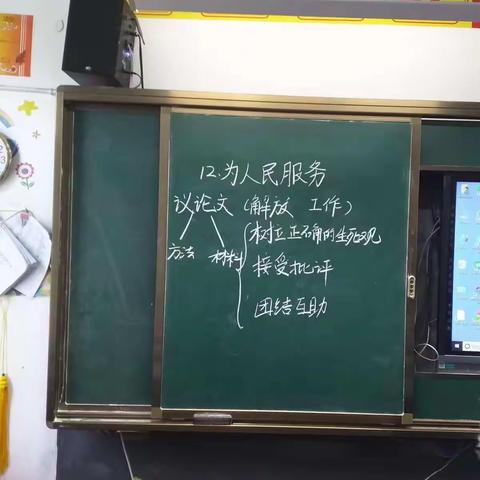 12.为人民服务
议论文(解放 工作)
树立正确的生死观
方法 材料
接受批评
团结互助